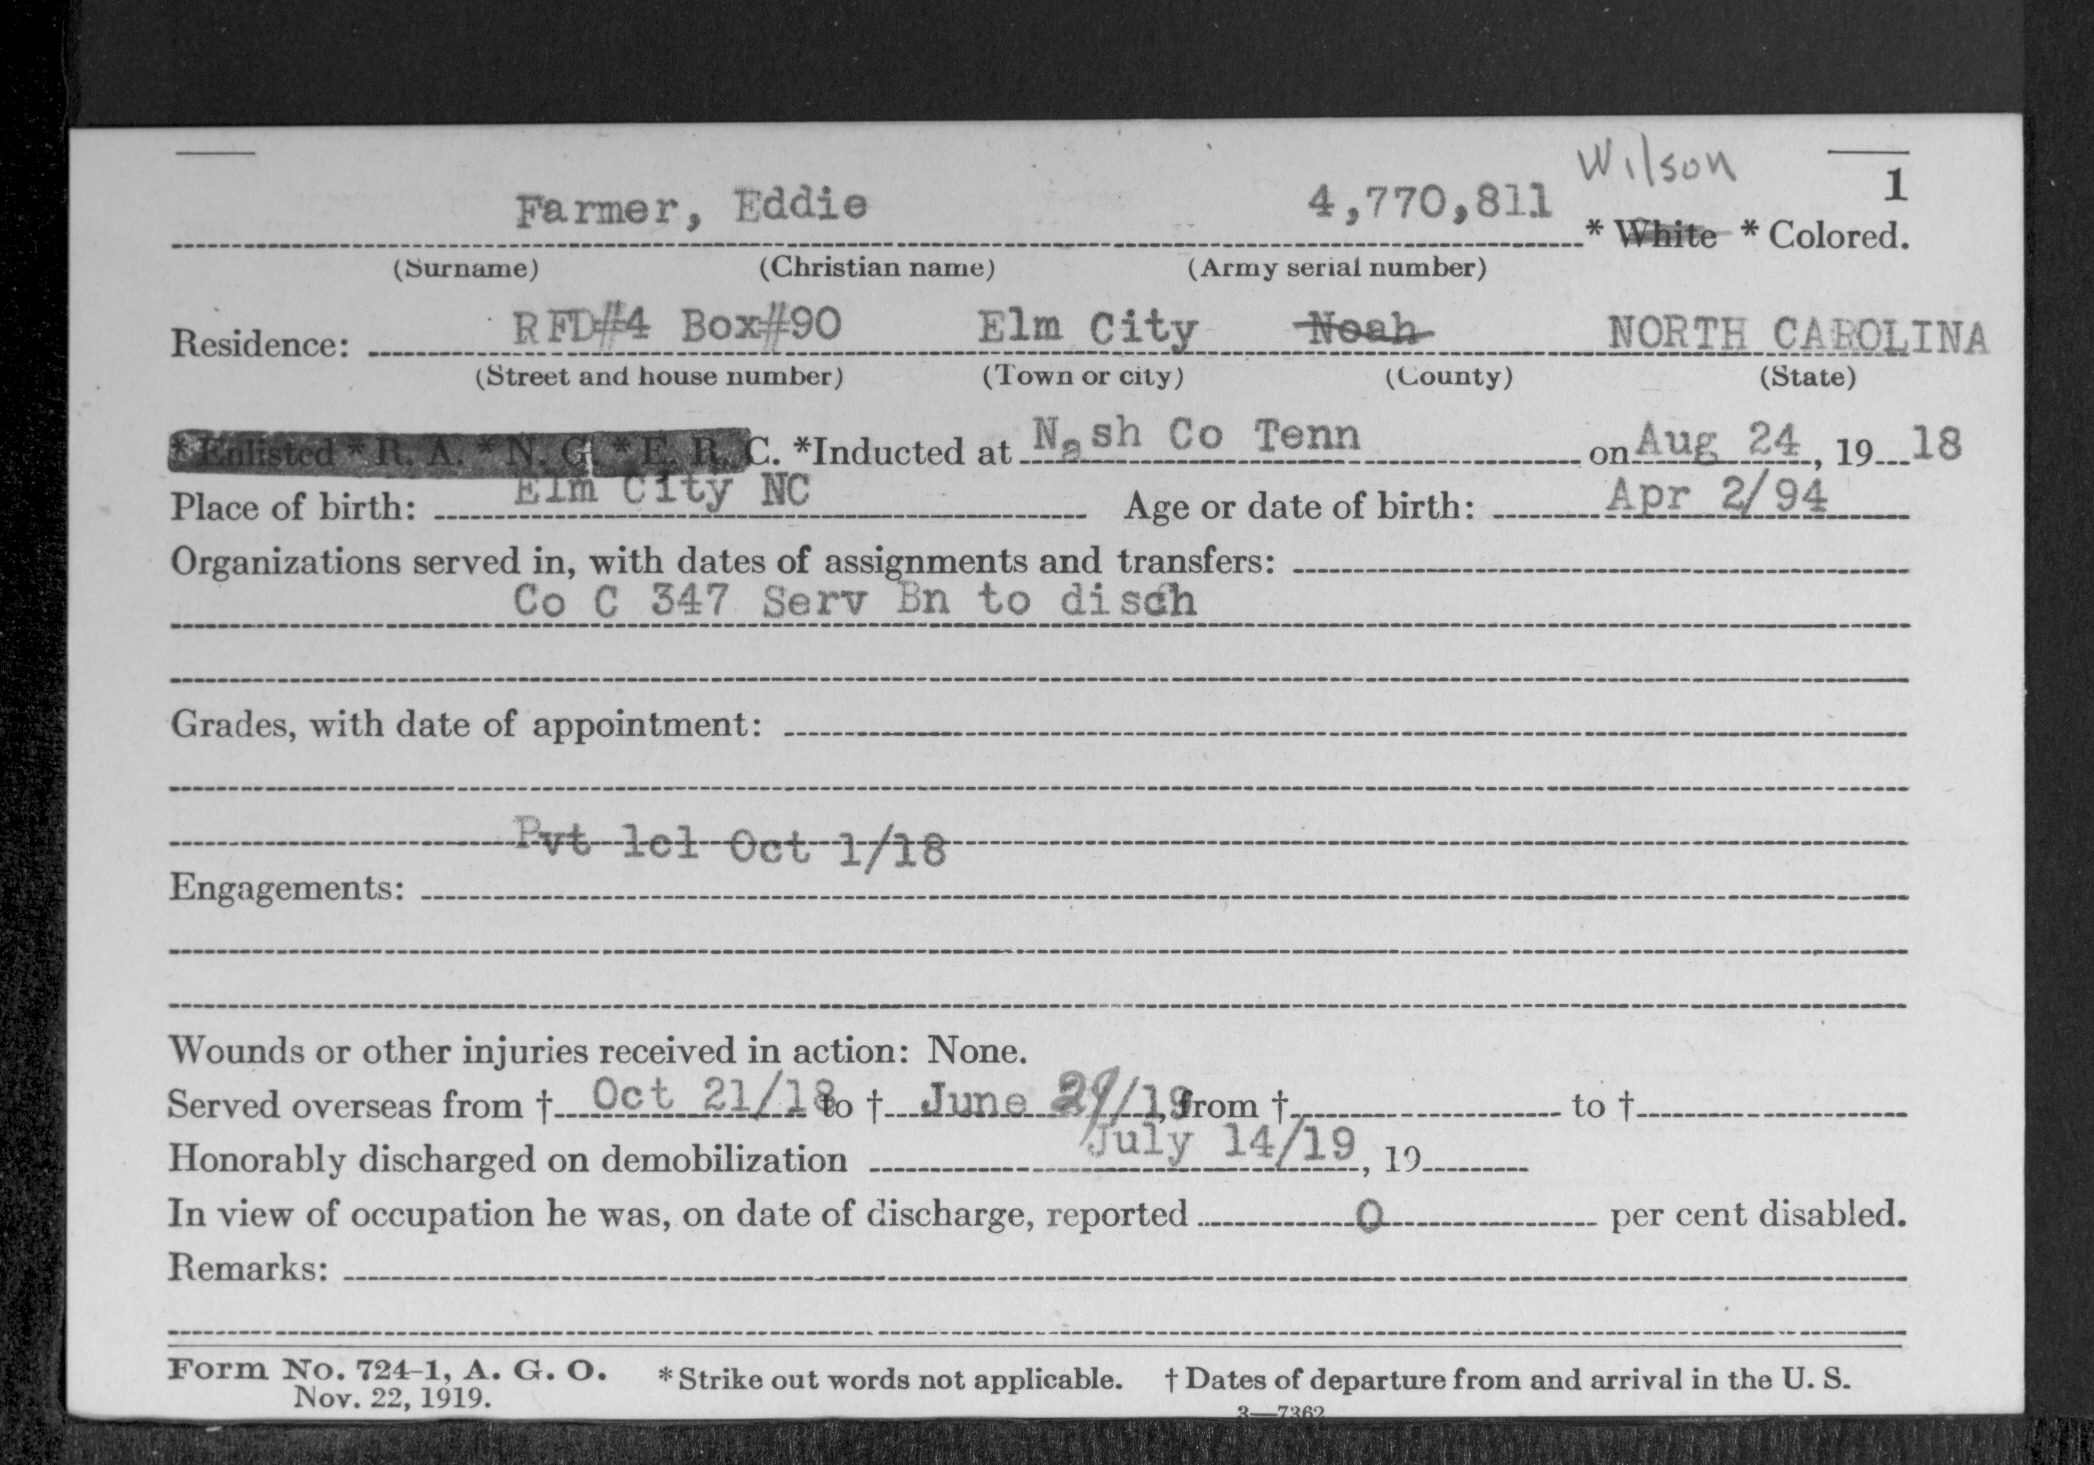 Wilson
1
Farmer, Eddie 4,770,811 * White * Colored.
(Surname) (Christian name) (Army serial number)
Residence: RFD#4 Box#90 Elm City Noah NORTH CAROLINA
(Street and house number) (Town or city) (County) (State)
*Enlisted *R. A. *N. G. *E. R. C. *Inducted at Nash Co Tenn on Aug 24, 1918
Place of birth: Elm City NC Age or date of birth: Apr 2/94
Organizations served in, with dates of assignments and transfers:
Co C 347 Serv Bn to disch
Grades, with date of appointment:
Pvt 1cl Oct 1/18
Engagements:
Wounds or other injuries received in action: None.
Served overseas from † Oct 21/18 to † June /19, from † to †
Honorably discharged on demobilization July 14/19, 19
In view of occupation he was, on date of discharge, reported 0 per cent disabled.
Remarks:
Form No. 724-1, A. G. O. *Strike out words not applicable. † Dates of departure from and arrival in the U. S.
Nov. 22, 1919.
3—7362